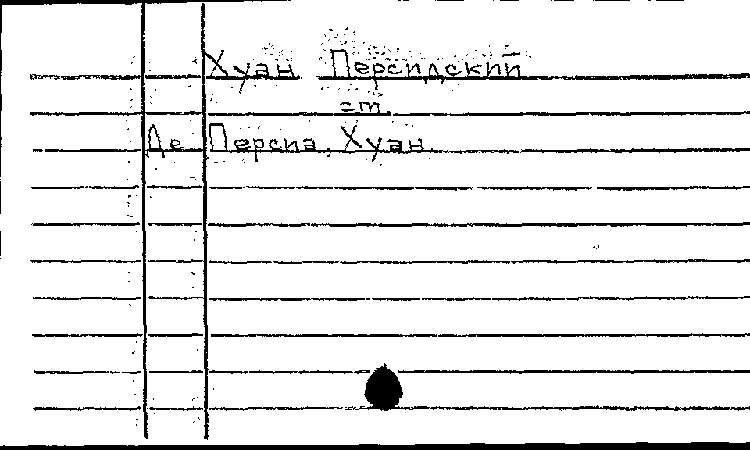 Хуан Персидский
см.
Де Персиа, Хуан